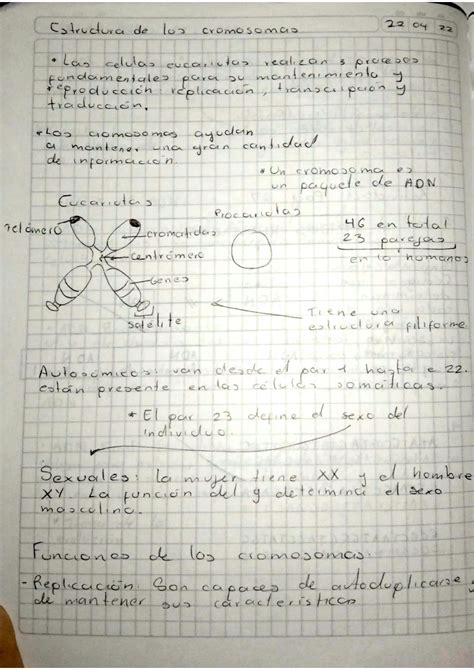 Estructura de los cromosomas 22 04 22
• Las celulas eucariotas realizan 3 procesos
fundamentales para su mantenimiento y
reproducción: replicación, transcripción y
traducción.
• Los cromosomas ayudan
a mantener una gran cantidad
de información.
* Un cromosoma es
un paquete de ADN
Eucariotas
Procariotas
Telómero
cromatidas
centrómero
Genes
satélite
46 en total
23 parejas
en lo humanos
Tiene una
estructura filiforme
Autosómicos: van desde el par 1 hasta e 22.
están presente en las células somáticas.
* El par 23 define el sexo del
individuo.
Sexuales: la mujer tiene XX y el hombre
XY. La función del y determina el sexo
masculino.
Funciones de los cromosomas:
- Replicación: Son capaces de autoduplicarse y
de mantener sus características